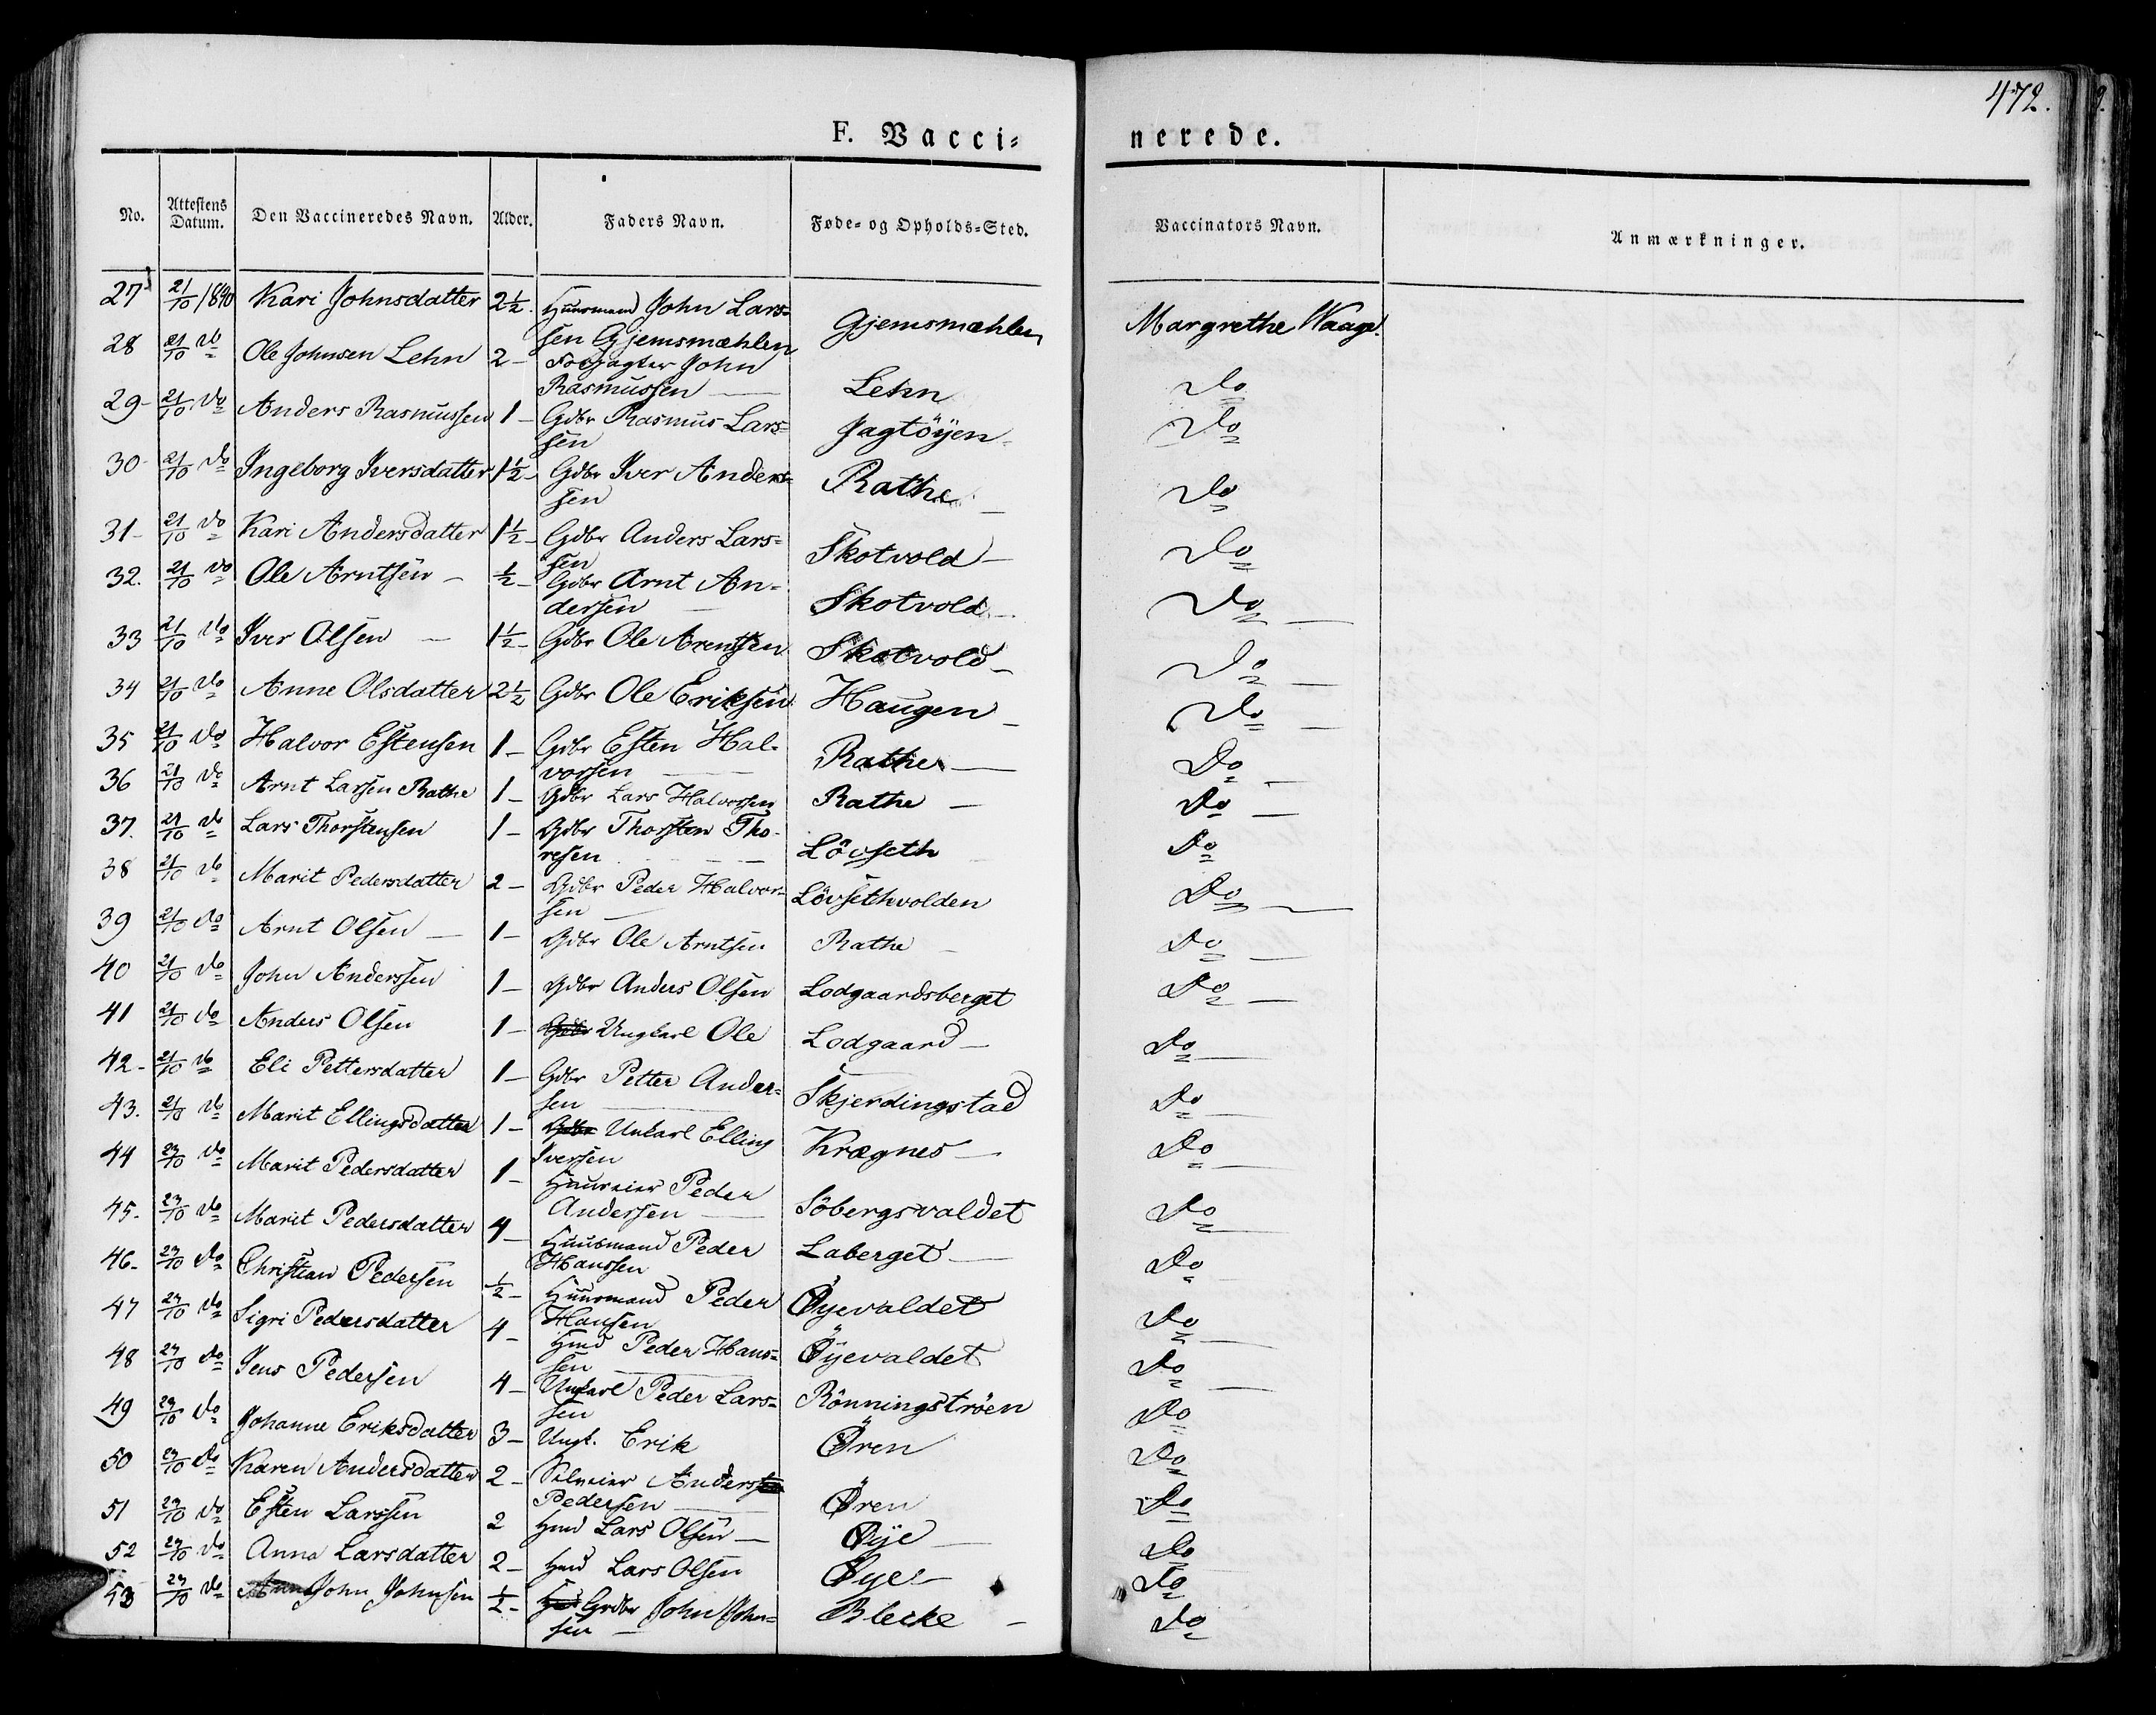 472.
F. Vacci-
nerede.
No. Attestens Datum. Den Vaccineredes Navn. Alder. Faders Navn. Føde- og Opholds-Sted. Vaccinators Navn. Anmærkninger.
27 21/10 1840 Kari Johnsdatter 2½. Huusmand John Lars-
sen Gjemsmæhlen Gjemsmæhlen Margrethe Waage.
28 21/10 do Ole Johnsen Lehn 2- Forpagter John
Rasmussen Lehn Do
29- 21/10 do Anders Rasmussen 1- Gdbr Rasmus Lars-
sen Jagtöyen Do
30- 21/10 do Ingeborg Iversdatter 1½- Gdbr Iver Anders-
sen Rathe Do
31- 21/10 do Kari Andersdatter 1½- Gdbr Anders Lars-
sen Skotvold Do
32. 21/10 do Ole Arntsen ½- Gdbr Arnt An-
dersen Skotvold Do
33 21/10 do Iver Olsen 1½- Gdbr Ole Arentsen Skotvold Do
34 21/10 do Anne Olsdatter 2½ Gdbr Ole Eriksen Haugen Do
35 21/10 do Halvor Estensen 1- Gdbr Esten Hal-
vorsen Rathe Do
36 21/10 do Arnt Larsen Rathe 1- Gdbr Lars Halvorsen Rathe Do
37. 21/10 do Lars Thorstensen 1- Gdbr Thorsten Tho-
resen Lövseth Do
38 21/10 do Marit Pedersdatter 2- Gdbr Peder Halvor-
sen Lövsethvolden Do
39 21/10 do Arnt Olsen 1- Gdbr Ole Arntsen Rathe Do
40 21/10 do John Anderssen 1- Gdbr Anders Olsen Lodgaardsberget Do
41 21/10 do Anders Olsen 1- Gdbr Ungkarl Ole Lodgaard Do
42- 21/10 do Eli Pettersdatter 1- Gdbr Petter Ander-
sen Skjerdingstad Do
43. 21/10 do Marit Ellingsdatter 1- Gdbr Unkarl Elling
Iversen Krægnes Do
44 23/10 do Marit Pedersdatter 1- Huuseier Peder
Andersen Söbergsvaldet Do
45. 23/10 do Marit Pedersdatter 4- Huusmand Peder
Hanssen Laberget Do
46- 23/10 do Christian Pedersen ½- Huusmand Peder
Hansen Øyevaldet Do
47 23/10 do Sigri Pedersdatter 4- Hmd Peder Hans-
sen Öyevaldet Do
48 23/10 do Jens Pedersen 4- Unkarl Peder Lars-
sen Rönningströen Do
49 23/10 do Johanne Eriksdatter 3- Ungk. Erik Øren Do
50 23/10 do Karen Andersdatter 2- Selveier Anderssen
Pedersen Øren Do
51 23/10 do Esten Larssen 2 Hmd Lars Olsen Øye Do
52 23/10 do Anna Larsdatter 2- Hmd Lars Olsen Øye Do
53 23/10 do Ann John Johnsen ½- Hmd Grdbr John John-
sen Blecke Do